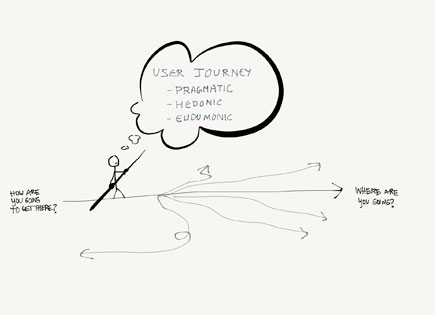 USER JOURNEY
- PRAGMATIC
- HEDONIC
- EUDUMONIC
HOW ARE
YOU GOING
TO GET THERE?
WHERE ARE
YOU GOING?